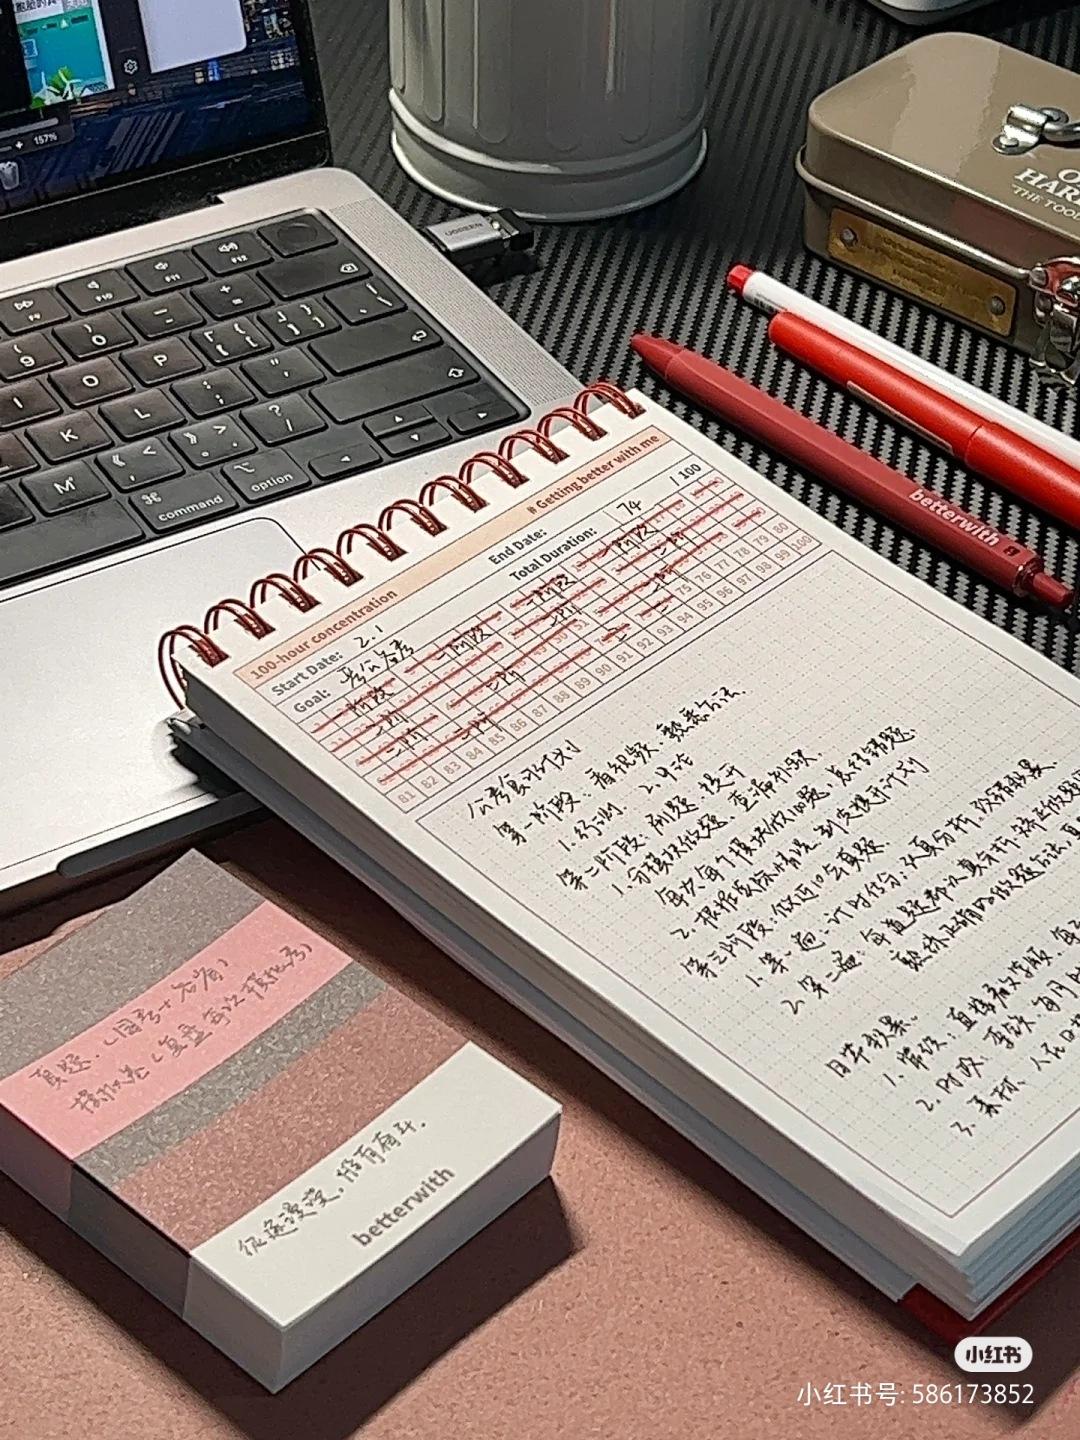 157%
F9
F10
F11
F12
O
P
I
L
K
M
command
option
UGREEN
HAR
THE TOOL
betterwith
# Getting better with me
100-hour concentration
Start Date: 2.1
End Date:
Goal: 考公备考
Total Duration: 74 /100
75 76 77 78 79 80
81 82 83 84 85 86 87 88 89 90 91 92 93 94 95 96 97 98 99 100
公考复习计划
第一阶段：看视频、熟悉方法.
1. 行测 2. 申论
第二阶段：刷题、提升
1. 分模块做题、查漏补缺.
每次每个模块做10题，总结错题.
2. 根据实际情况，制定提升计划
第三阶段：做近10套真题.
1. 第一遍：计时估分，认真分析，改错教果.
2. 第二遍：每道题都认真分析，矫正做题
熟练正确的做题方法，
日常积累.
1. 常识：直接看
2. 时政：
3. 素材、人民日
真题.（国考+省考）
模拟卷（复盘每次模拟考）
征途漫漫，惟有奋斗.
betterwith
小红书
小红书号: 586173852